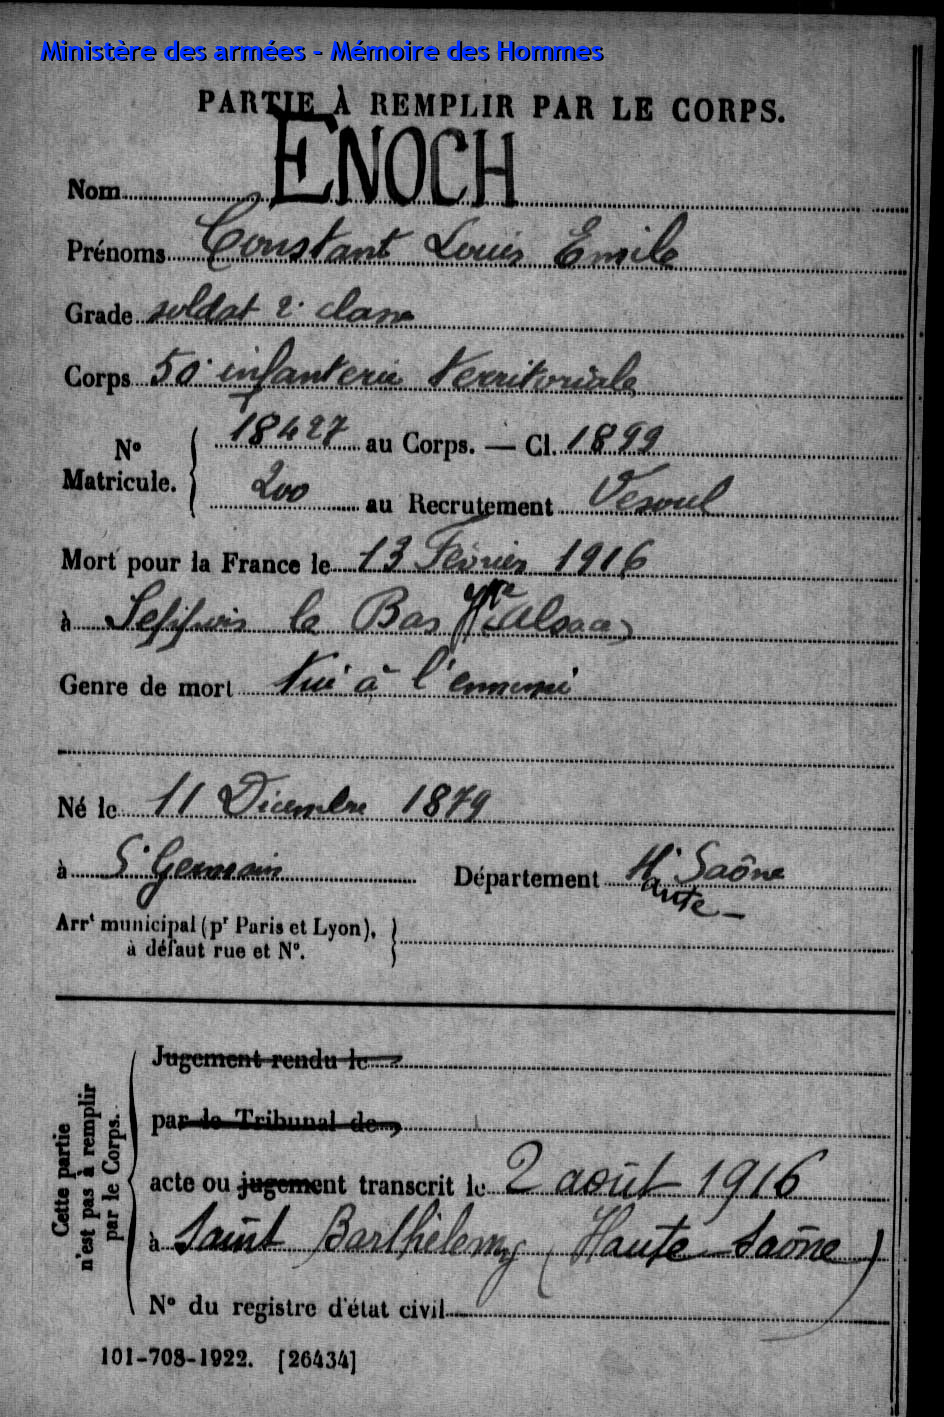 Ministère des armées - Mémoire des Hommes
PARTIE À REMPLIR PAR LE CORPS.
Nom ENOCH
Prénoms Constant Louis Emile
Grade soldat 2e classe
Corps 50e infanterie territoriale
No Matricule. { 18427 au Corps. — Cl. 1899
200 au Recrutement Vesoul
Mort pour la France le 13 Février 1916
à Seppois le Bas Hte Alsace
Genre de mort Tué à l'ennemi
Né le 11 Décembre 1879
à St Germain Département Hte Saône
aute
Arrt municipal (pr Paris et Lyon),
à défaut rue et No.
Cette partie
n'est pas à remplir
par le Corps.
Jugement rendu le
par le Tribunal de
acte ou jugement transcrit le 2 août 1916
à Saint Barthélemy (Haute-Saône)
No du registre d'état civil
101-708-1922. [26434]